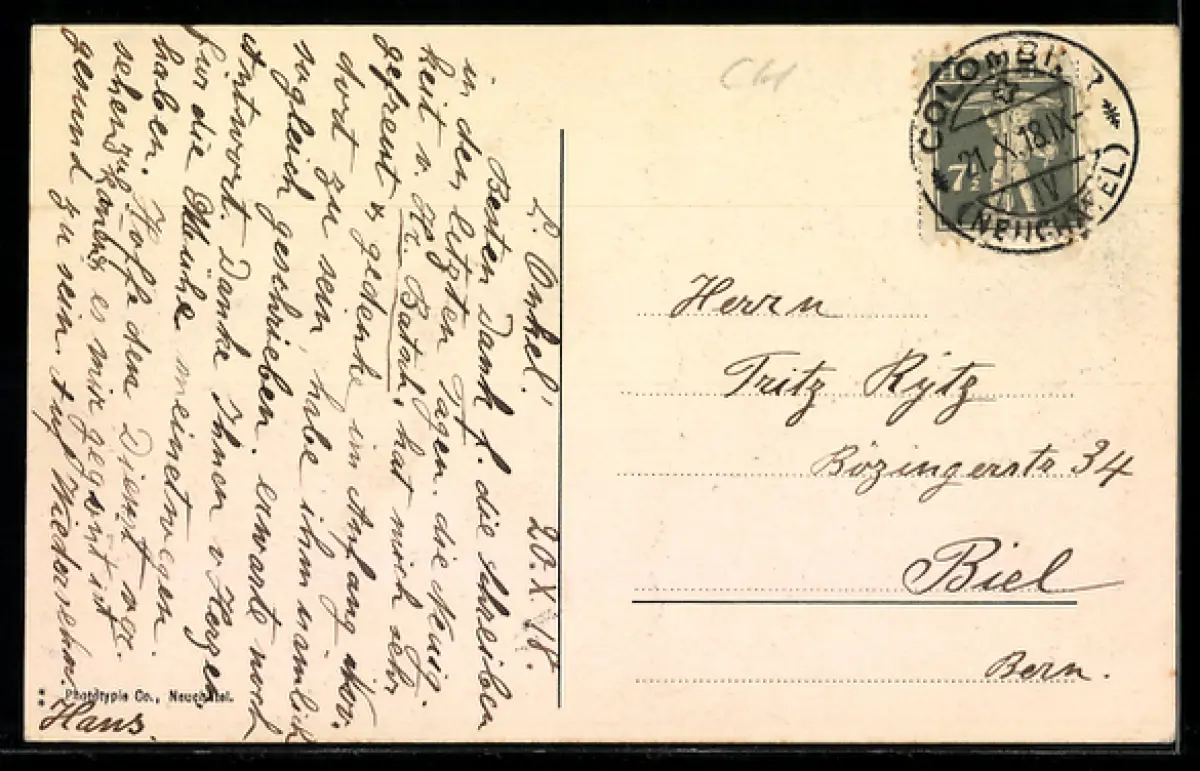 L. Onkel! 20.X.18.
Besten Dank f. die Schreiben
in den letzten Tagen. die Neuig-
keit v. Hr. Batah, hat mich sehr
gefreut & gedenke im Anfang Nov.
dort zu sein, habe ihm nämlich
sogleich geschrieben. erwarte noch
Antwort. Danke Ihnen v. Herzen
für die Mühe meinetwegen
haben. Hoffe den Dienst
sehen zu können es mir gegönnt ist
gesund zu sein. Auf Wiedersehn.
Hans.
Phototypie Co., Neuchâtel.
COLOMBIER
21.X.18.IX-
IV
(NEUCHÂTEL)
7½
Herrn
Fritz Rytz
Bözingerstr. 34
Biel
Bern.